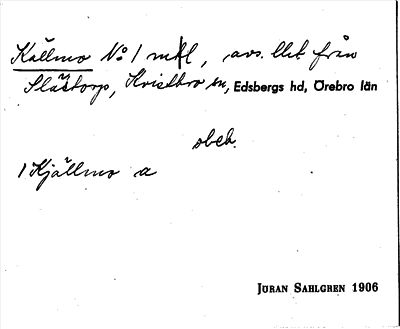 Källmo No 1 mtl, avs. llet från
Slästorp, Kvistbro sn, Edsbergs hd, Örebro län
obeb.
1 Kjällmo a
JÖRAN SAHLGREN 1906